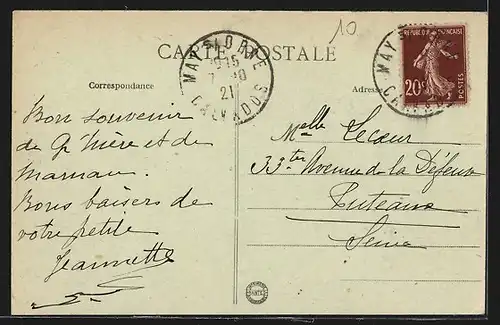 10
CARTE POSTALE
Correspondance
Adresse
MAY-S-ORNE
21
CALVADOS
REPUBLIQUE FRANÇAISE
20c
POSTES
Bon souvenir
de Gd Mère et de
maman.
Bons baisers de
votre petite
Jeannette
Melle Lecœur
33ter Avenue de la Défense
Puteaux
Seine